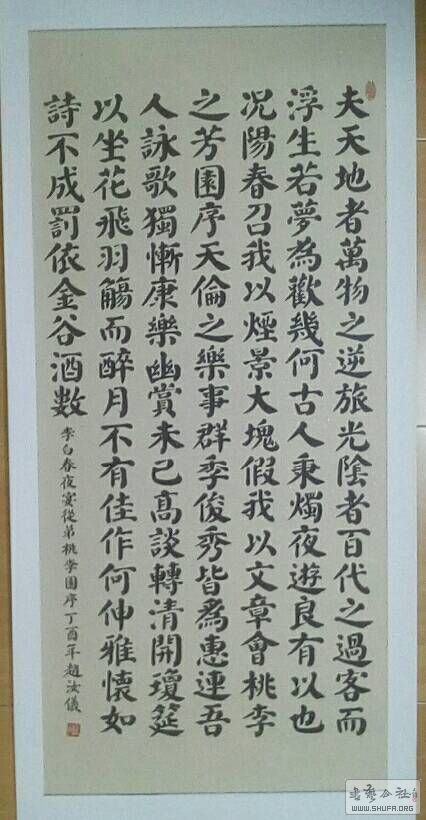 夫天地者萬物之逆旅光陰者百代之過客而
浮生若夢為歡幾何古人秉燭夜遊良有以也
况陽春召我以煙景大塊假我以文章會桃李
之芳園序天倫之樂事群季俊秀皆爲惠連吾
人詠歌獨慚康樂幽賞未已高談轉清開瓊筵
以坐花飛羽觴而醉月不有佳作何伸雅懷如
詩不成罰依金谷酒數
李白春夜宴從弟桃李園序丁酉年趙汝儀
書藝公社
WWW.SHUFA.ORG